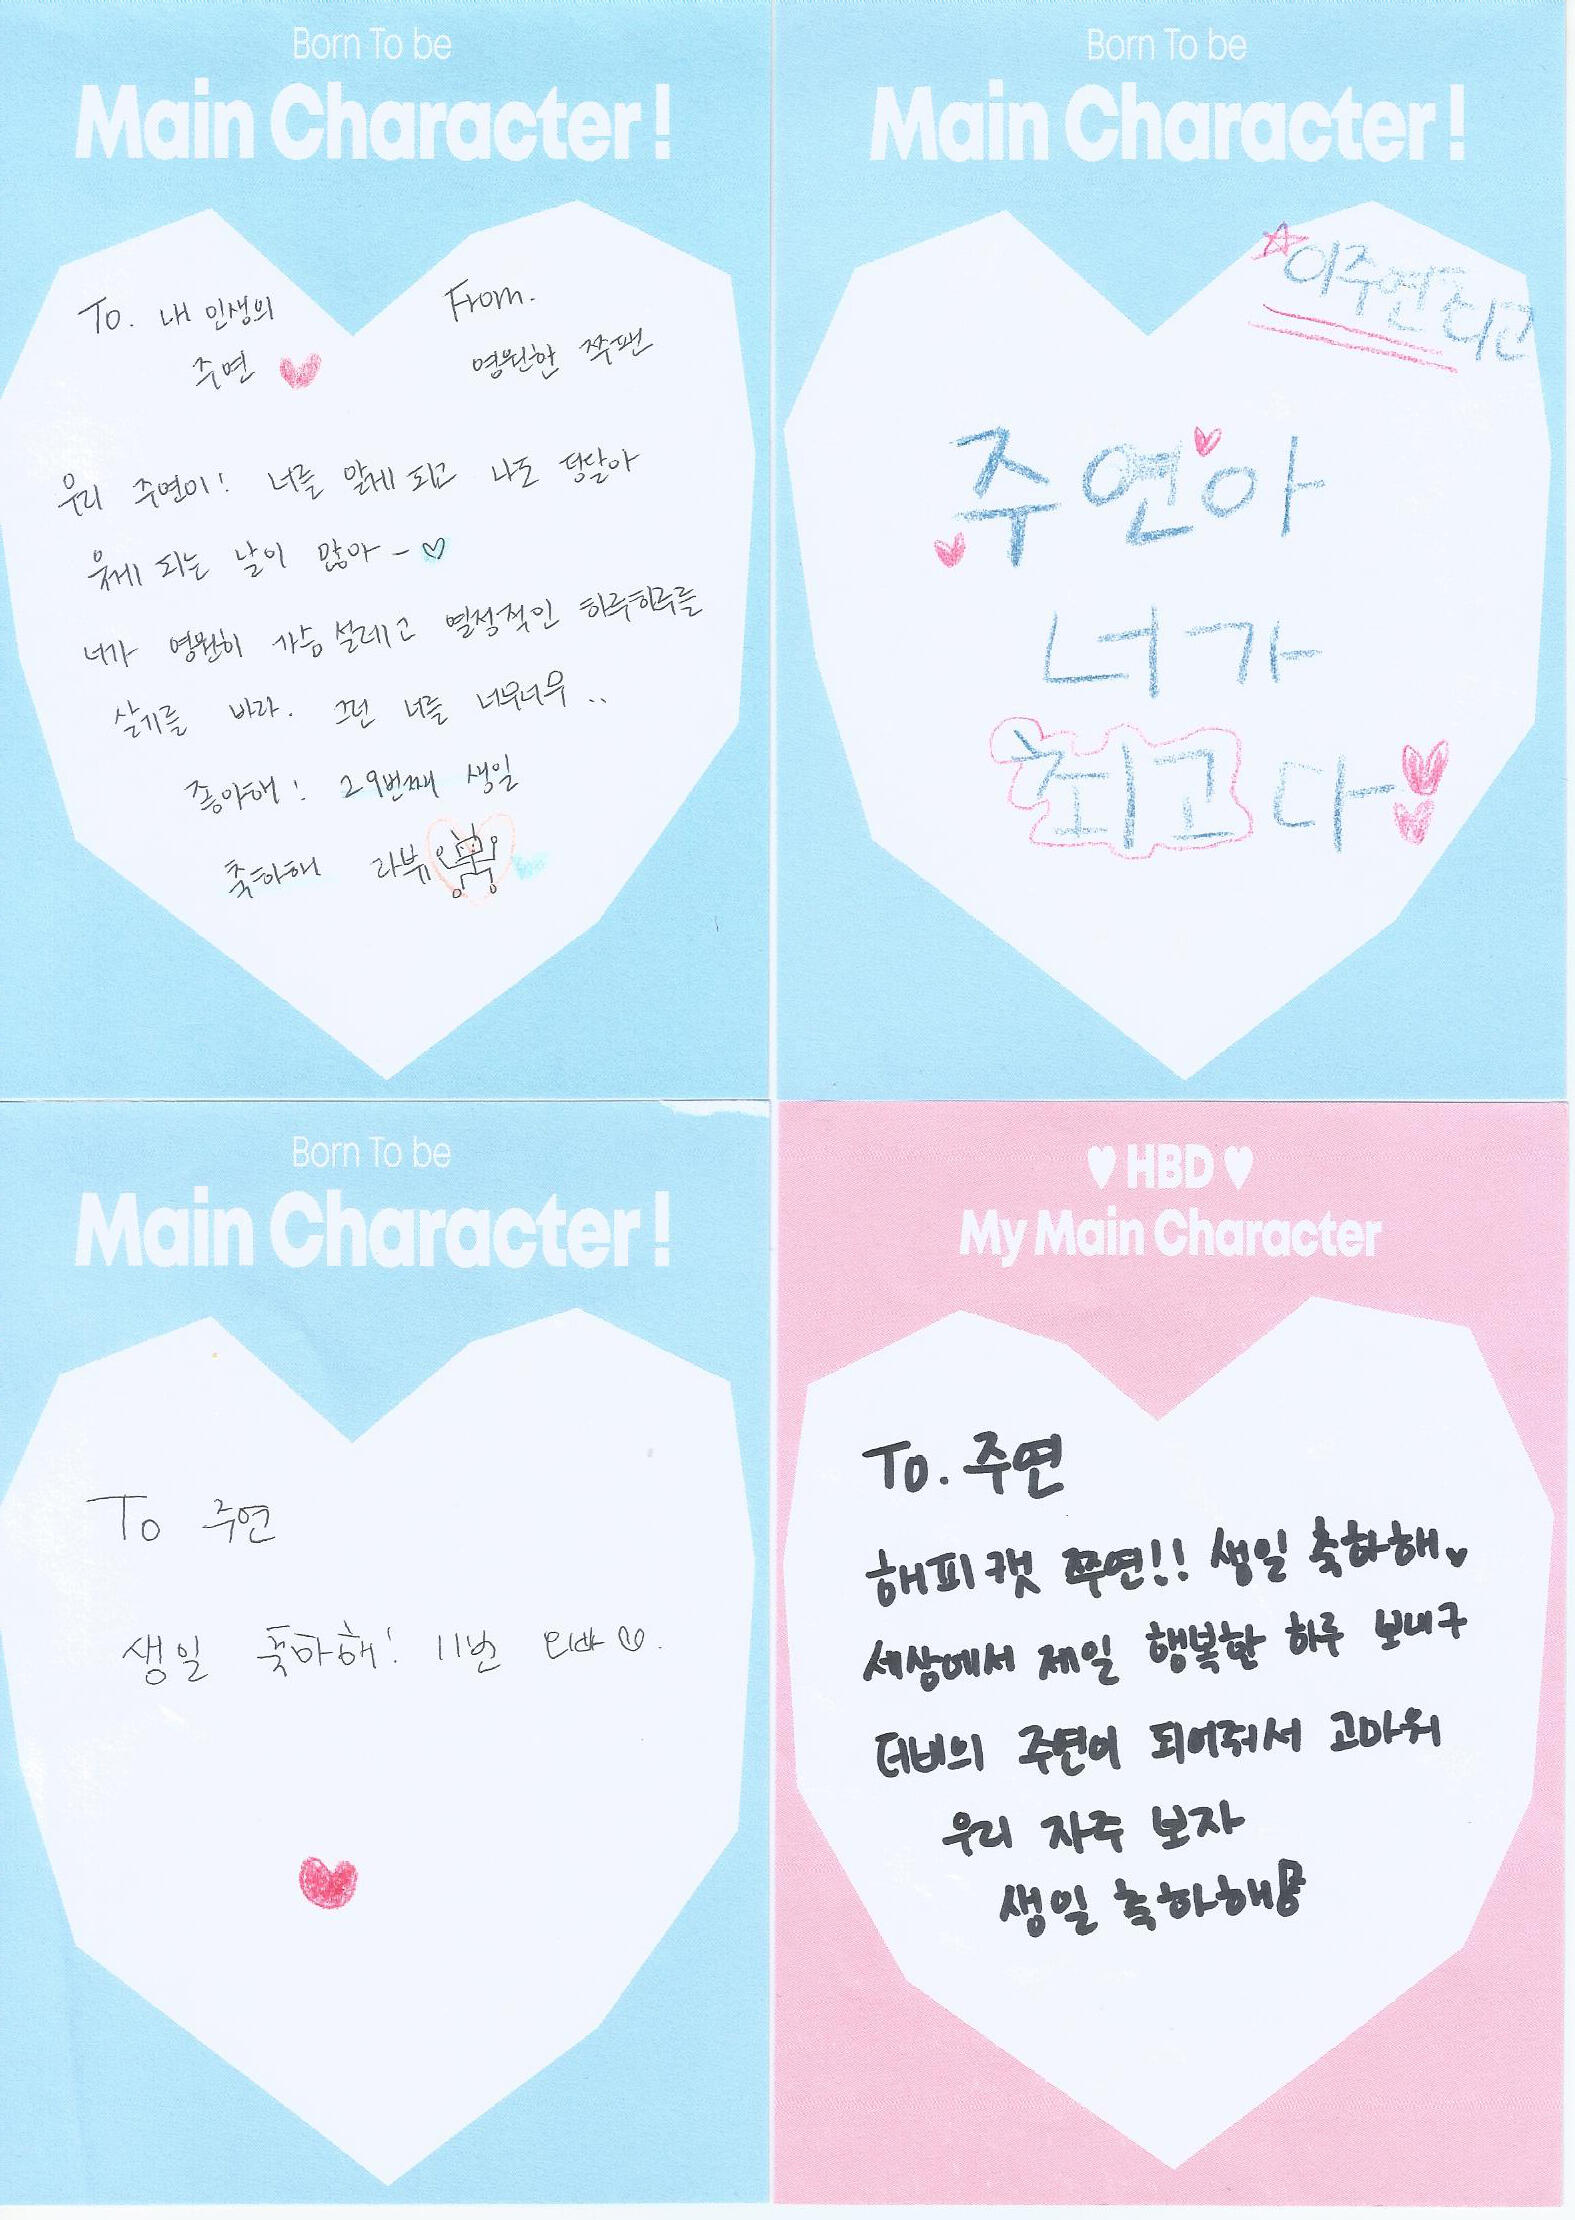 Born To be
Main Character!
To. 내 인생의
주연
From.
영원한 쭈팬
우리 주연이! 너를 알게 되고 나도 덩달아
웃게 되는 날이 많아~
너가 영원히 가슴 설레고 열정적인 하루하루를
살기를 바라. 그런 너를 너무너무..
좋아해! 29번째 생일
축하해 라뷰
Born To be
Main Character!
이주연최고
주연아
너가
최고다
Born To be
Main Character!
To 주연
생일 축하해! 11번
♥ HBD ♥
My Main Character
To. 주연
해피캣 쭈연!! 생일 축하해
세상에서 제일 행복한 하루 보내구
더비의 주연이 되어줘서 고마워
우리 자주 보자
생일 축하해